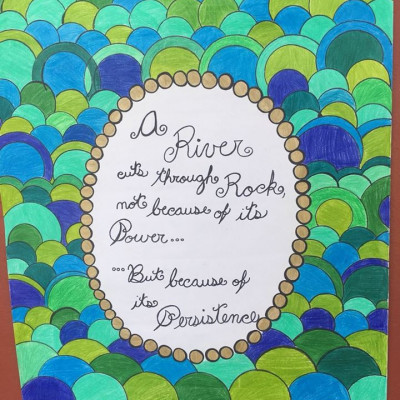 A
River
cuts through Rock,
not because of its
Power...
...But because of
its
Persistence